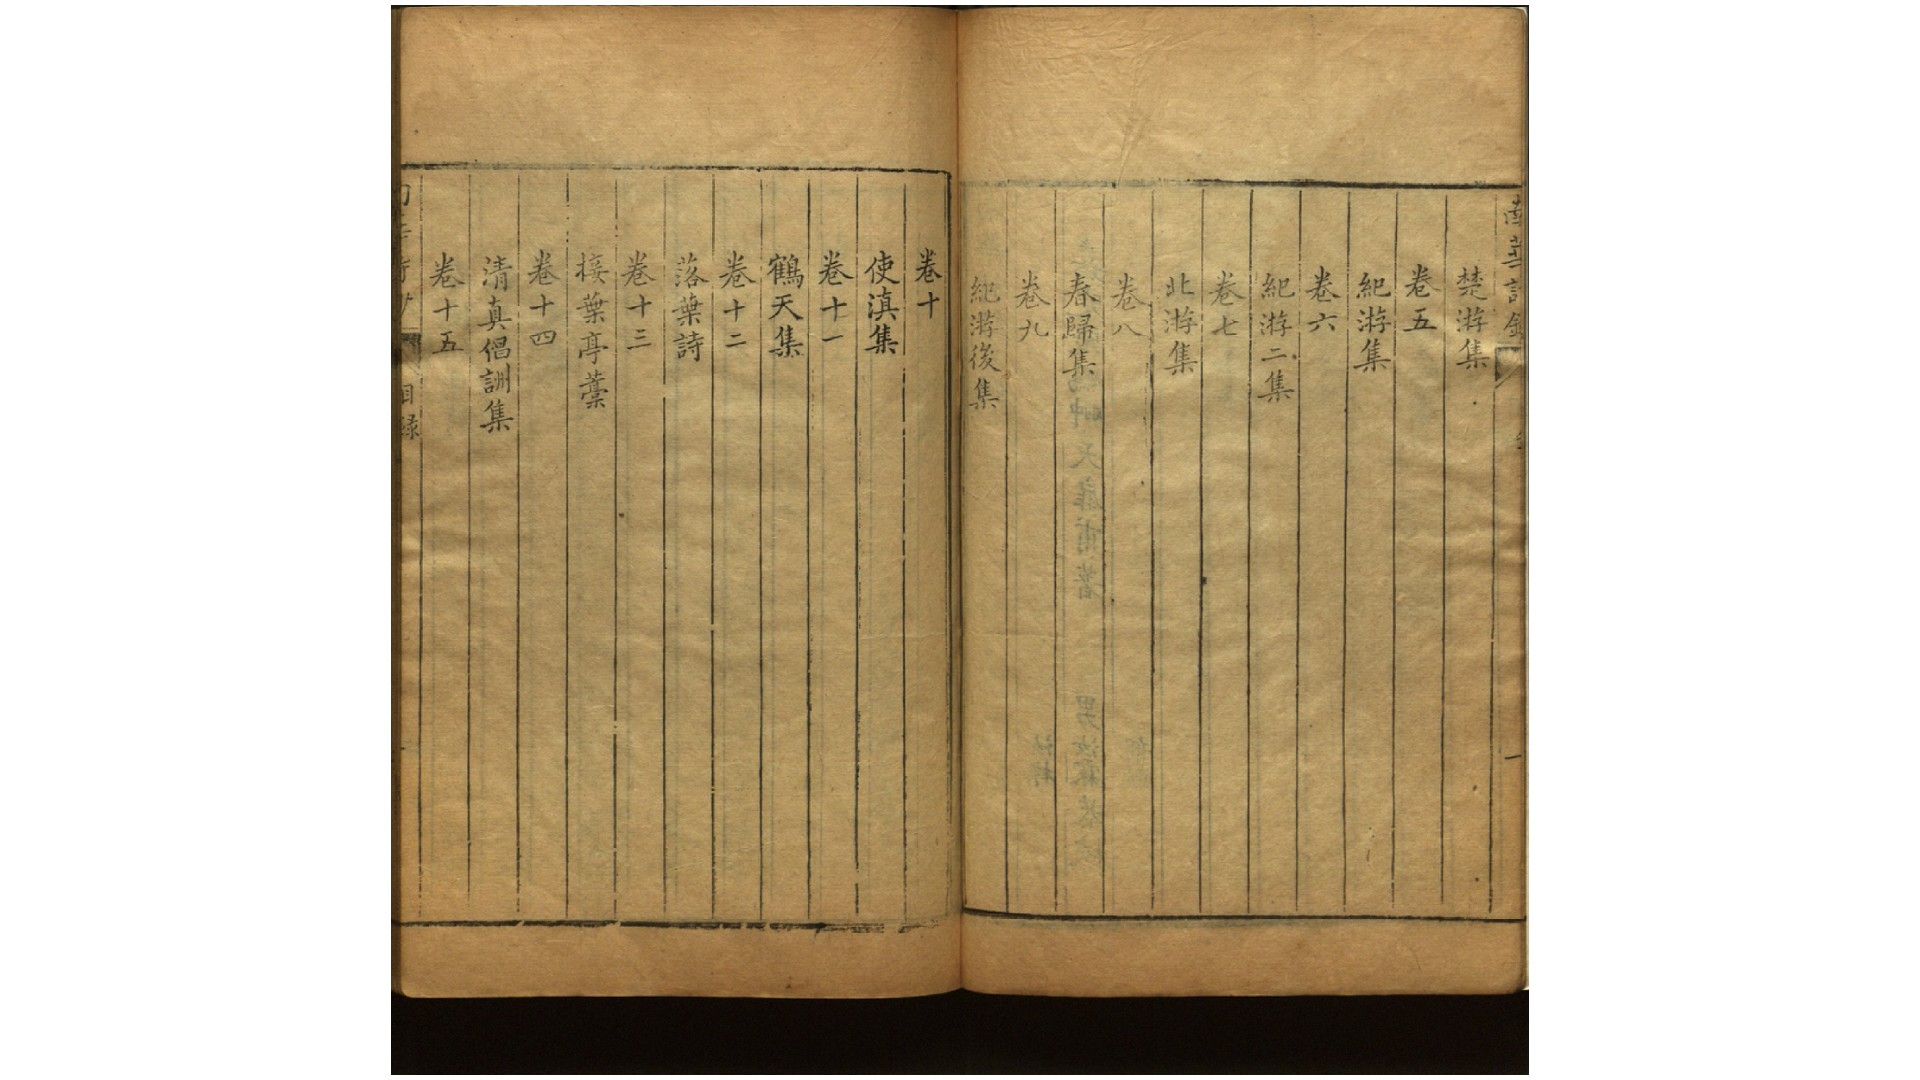 楚游集
卷五
紀游集
卷六
紀游二集
卷七
北游集
卷八
春歸集
卷九
紀游後集
卷十
使滇集
卷十一
鶴天集
卷十二
落葉詩
卷十三
接葉亭藁
卷十四
清真倡詶集
卷十五
目録